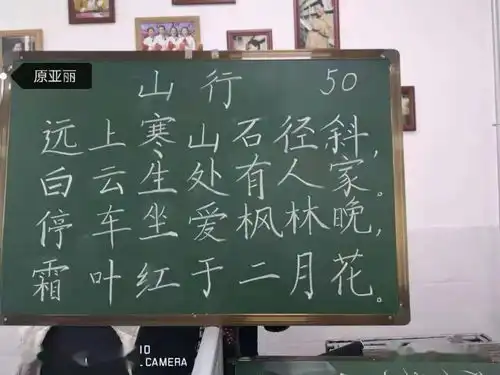 原亚丽
山行 50
远上寒山石径斜，
白云生处有人家。
停车坐爱枫林晚，
霜叶红于二月花。
10
CAMERA